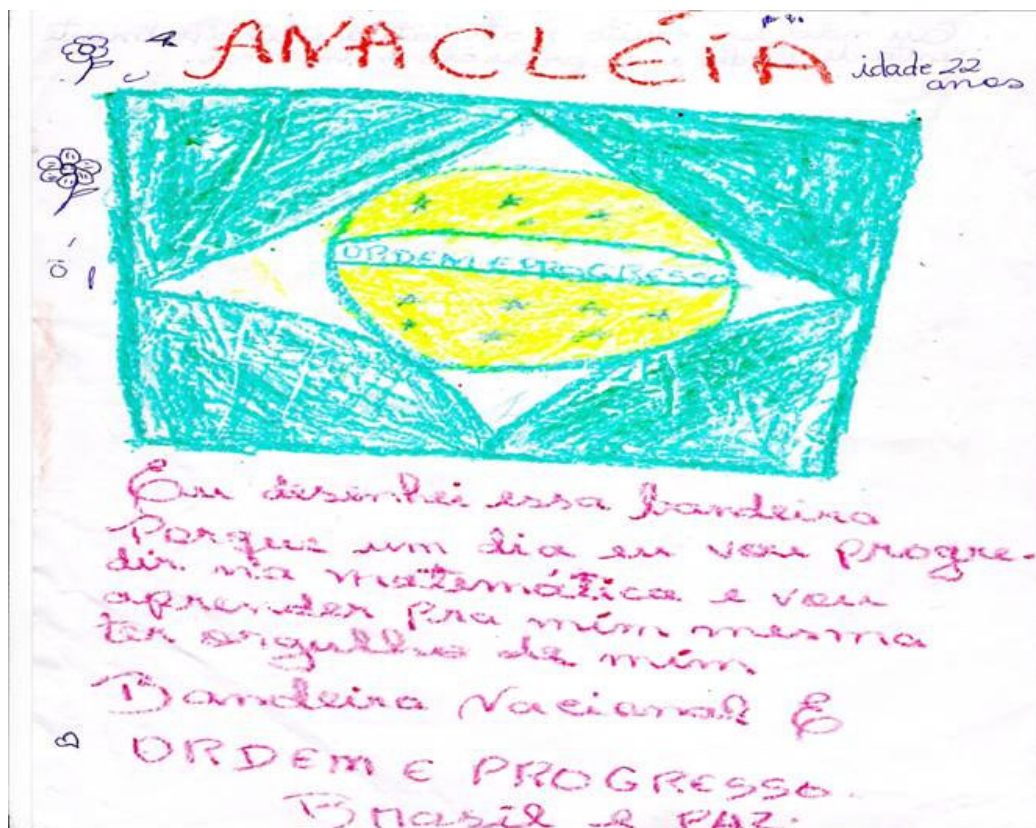 ANACLÉIA
idade 22
anos
ORDEM E PROGRESSO
Eu desenhei essa bandeira
Porque um dia eu vou progre-
dir na matemática e vou
aprender pra mim mesma
ter orgulho de mim
Bandeira Nacional E
ORDEM E PROGRESSO.
Brasil e PAZ.